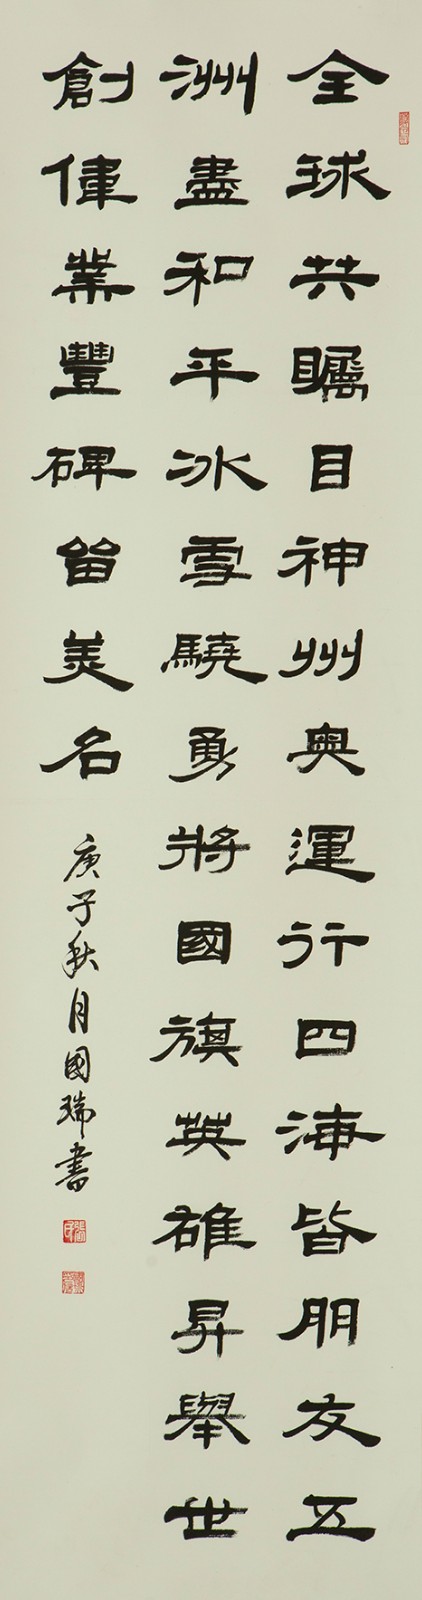 全球共矚目神州奧運行四海皆朋友五
洲盡和平冰雪驍勇將國旗英雄昇舉世
創偉業豐碑留美名
庚子秋月國瑞書